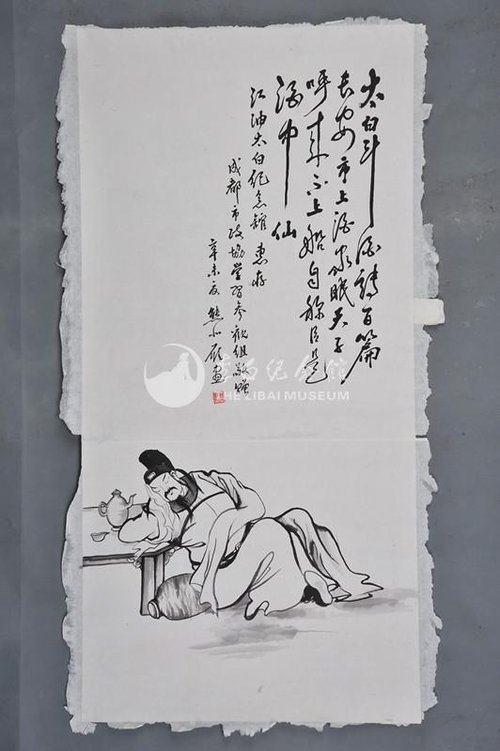 太白斗酒诗百篇
长安市上酒家眠天子
呼来不上船自称臣是
酒中仙
江油太白纪念馆惠存
成都市政协学习参观组敬赠
辛未夏熊小雁画
李白纪念馆
THE LIBAI MUSEUM